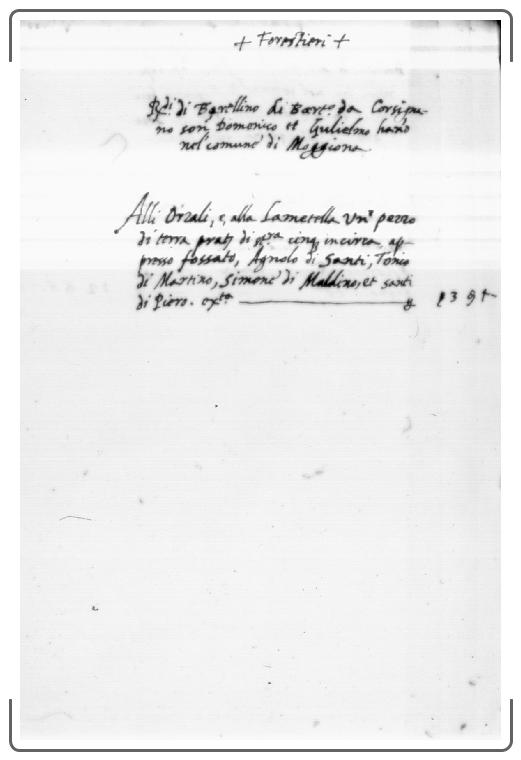 + Forestieri +
Rdi di Barellino di Barto da Corsigna-
no son Domenico et Gulielmo hano
nel comune di Moggiona
Alli Orzali, e, alla Lametella Vno pezzo
di terra prati di stra cinq incirca, ap-
presso fossato, Agnolo di Santi, Tonio
di Martino, Simone di Maldino, et santi
di Piero. exta